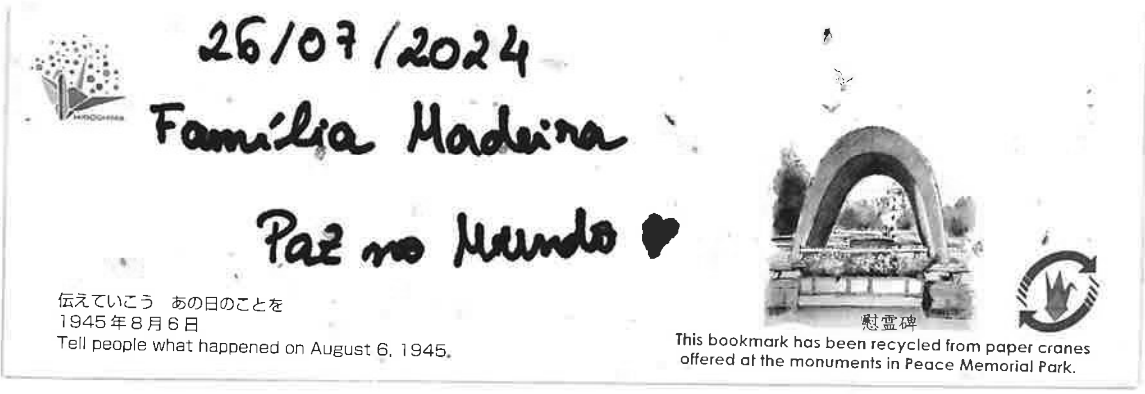 26/07/2024
Família Madeira
Paz no Mundo
HIROSHIMA
伝えていこう あの日のことを
1945年8月6日
Tell people what happened on August 6, 1945.
慰霊碑
This bookmark has been recycled from paper cranes
offered at the monuments in Peace Memorial Park.